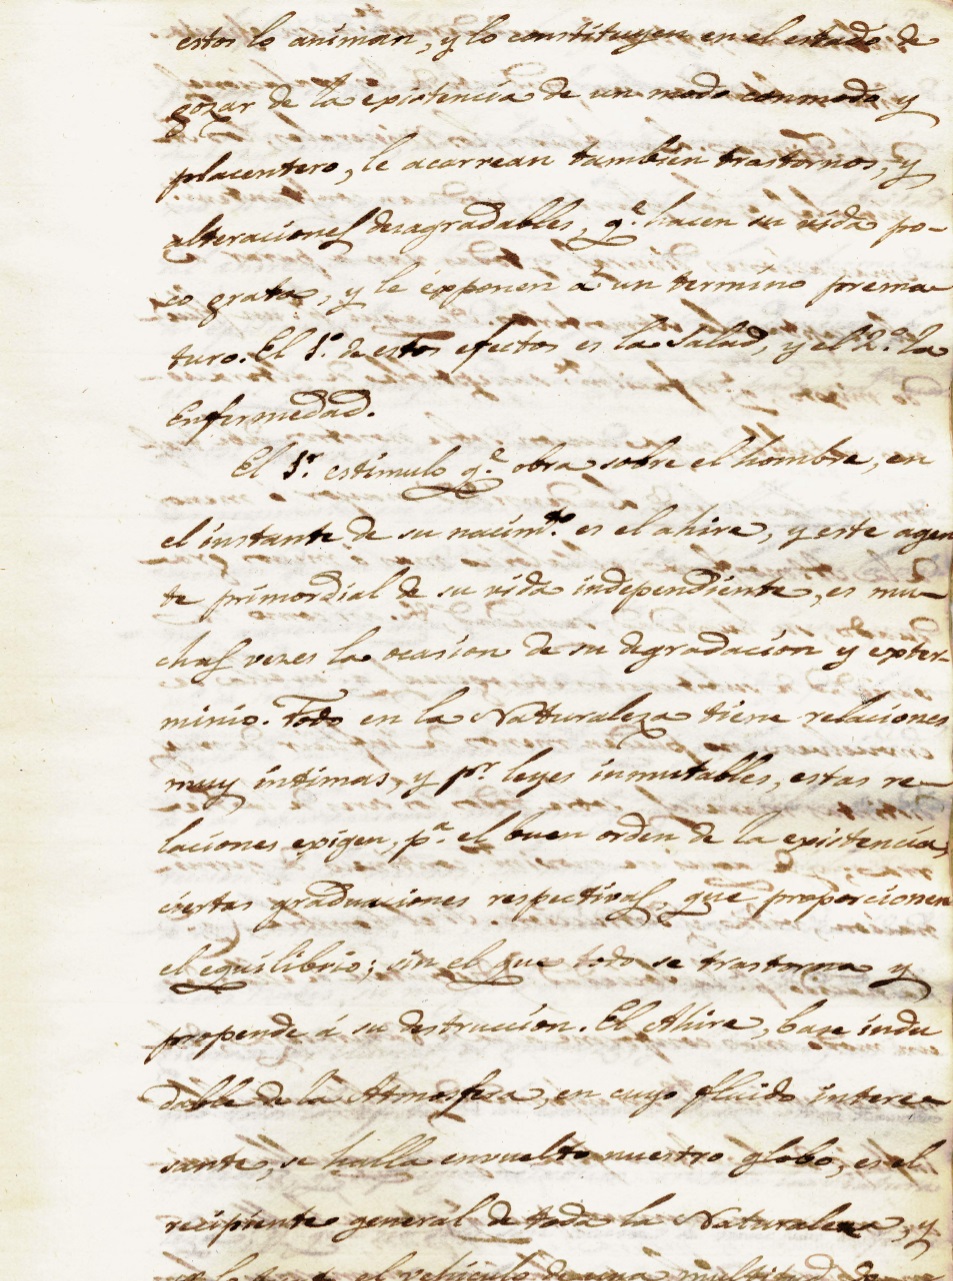 estos lo animan, y lo constituyen en el estado de
gozar de la existencia de un modo conmodo y
placentero, le acarrean tambien trastornos, y
alteraciones desagradables, q.e hacen su vida po-
co grata, y le exponen á un termino prema-
turo. El 1.o de estos efectos es la Salud, y el 2.o la
Enfermedad.
El 1.r estimulo q.e obra sobre el hombre, en
el instante de su nacim.to es el ahire, y este agen
te primordial de su vida independiente, es mu-
chas vezes la ocasion de su degradacion y exter-
minio. Todo en la Naturaleza tiene relaciones
muy intimas, y p.r leyes inmutables, estas re-
laciones exigen, p.a el buen orden de la existencia,
ciertas graduaciones respectivas, que proporcionen
el equilibrio; sin el que todo se trastorna y
propende á su destruccion. El Ahire, base indu
dable de la Atmosfera, en cuyo fluido intere-
sante, se halla envuelto nuestro globo, es el
recipiente general de toda la Naturaleza, y
el vehiculo de una multitud de